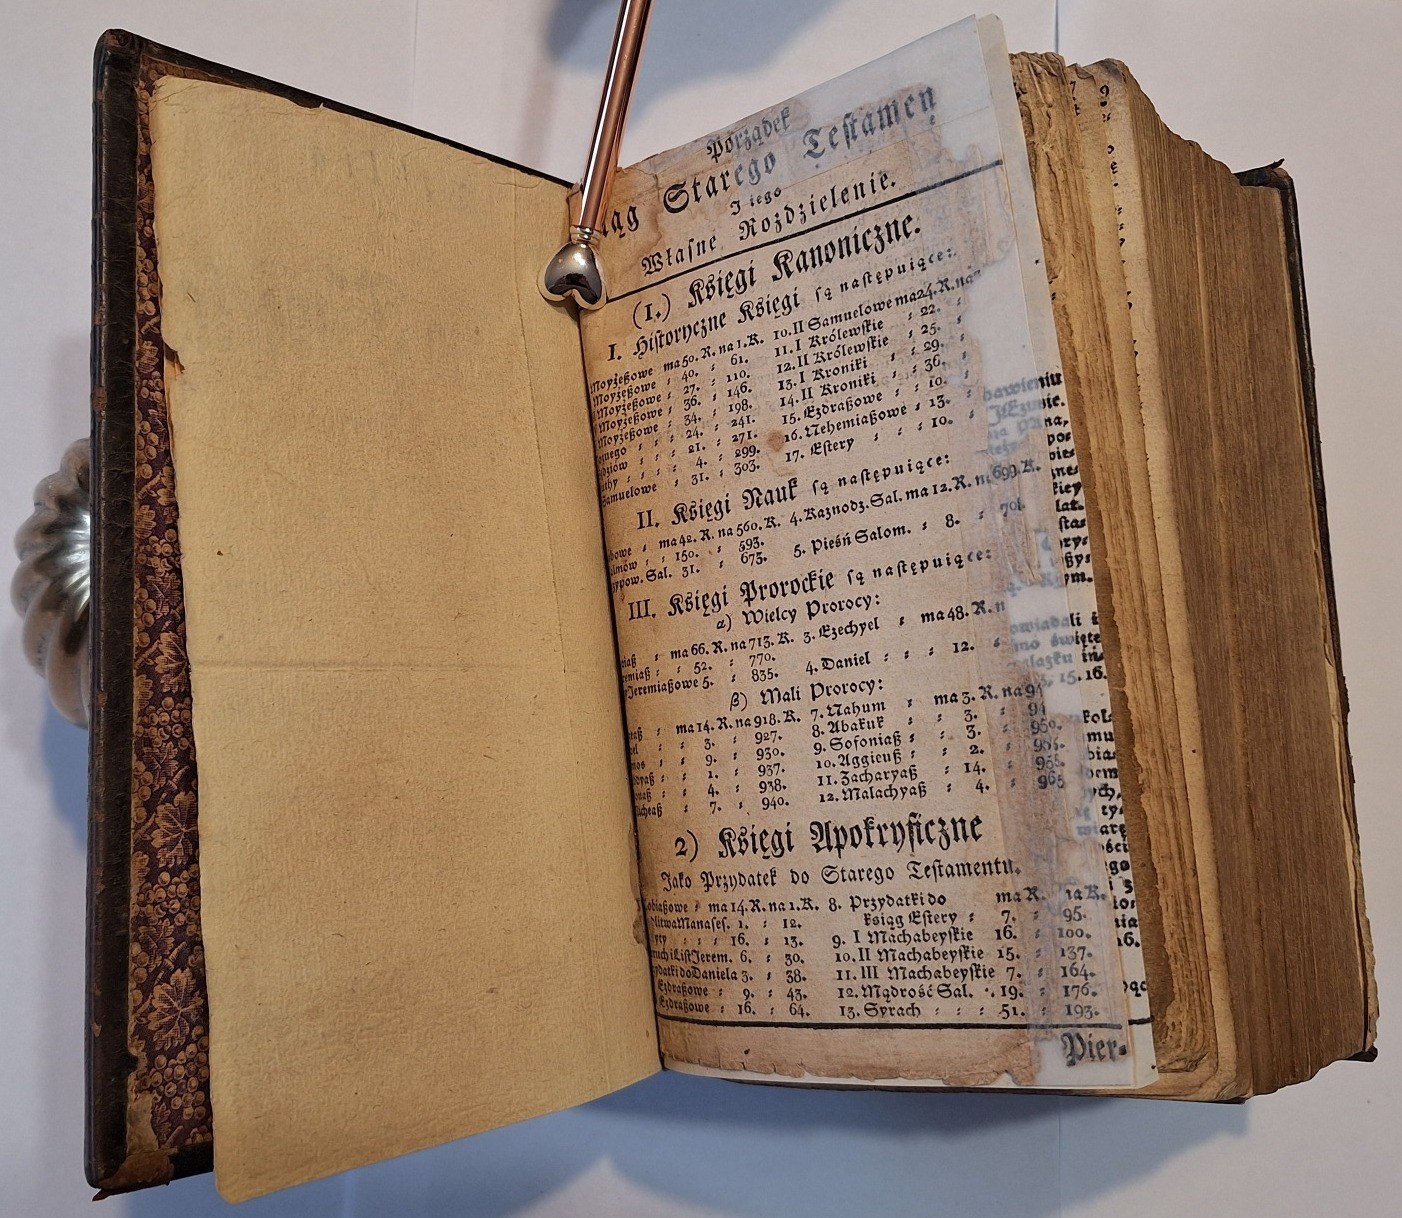 Porządek
iąg Starego Testamen
J iego
Własne Rozdzielenie.
(1.) Księgi Kanoniczne.
I. Historyczne Księgi są następuiące:
Moyżeßowe ma 50. R. na 1. K. 10. II Samuelowe ma 24. R. na
Moyżeßowe : 40. : 61. 11. I Królewskie : 22. :
Moyżeßowe : 27. : 110. 12. II Królewskie : 25. :
Moyżeßowe : 36. : 146. 13. I Kroniki : : 29. :
Moyżeßowe : 34. : 198. 14. II Kroniki : 36. :
: : 24. : 241. 15. Ezdraßowe : : 10. :
dziów : : 21. : 271. 16. Nehemiaßowe : 13. :
: : : 4. : 299. 17. Estery : : : 10. :
Samuelowe : 31. : 303.
II. Księgi Nauk są następuiące:
bowe : ma 42. R. na 560. K. 4. Kaznodz. Sal. ma 12. R. na 699. K.
lmów : : 150. : 593. 5. Pieśń Salom. : 8. : 701.
zypow. Sal. 31. : 673.
III. Księgi Prorockie są następuiące:
α) Wielcy Prorocy:
iaß : ma 66. R. na 713. K. 3. Ezechyel : ma 48. R. n
remiaß : : 52. : 770. 4. Daniel : : : 12. :
Jeremiaßowe 5. : 835.
β) Mali Prorocy:
: ma 14. R. na 918. K. 7. Nahum : ma 3. R. na 94
: : 3. : 927. 8. Abakuk : : 3. : 94
mos : : 9. : 930. 9. Sofoniaß : : 3. : 950.
dyaß : : 1. : 937. 10. Aggieuß : : 2. :
naß : : 4. : 938. 11. Zacharyaß : 14. :
icheaß : 7. : 940. 12. Malachyaß : 4. : 965
2) Księgi Apokryficzne
Jako Przydatek do Starego Testamentu.
obiaßowe : ma 14. R. na 1. K. 8. Przydatki do ma R. na K.
dlitwa Manases. 1. : 12. ksiąg Estery : 7. : 95.
: : : 16. : 13. 9. I Machabeyskie 16. : 100.
ruch i List Jerem. 6. : 30. 10. II Machabeyskie 15. : 137.
ydatki do Daniela 3. : 38. 11. III Machabeyskie 7. : 164.
Ezdraßowe : 9. : 43. 12. Mądrość Sal. : 19. : 176.
Ezdraßowe : 16. : 64. 13. Syrach : : : 51. : 193.
Pier-